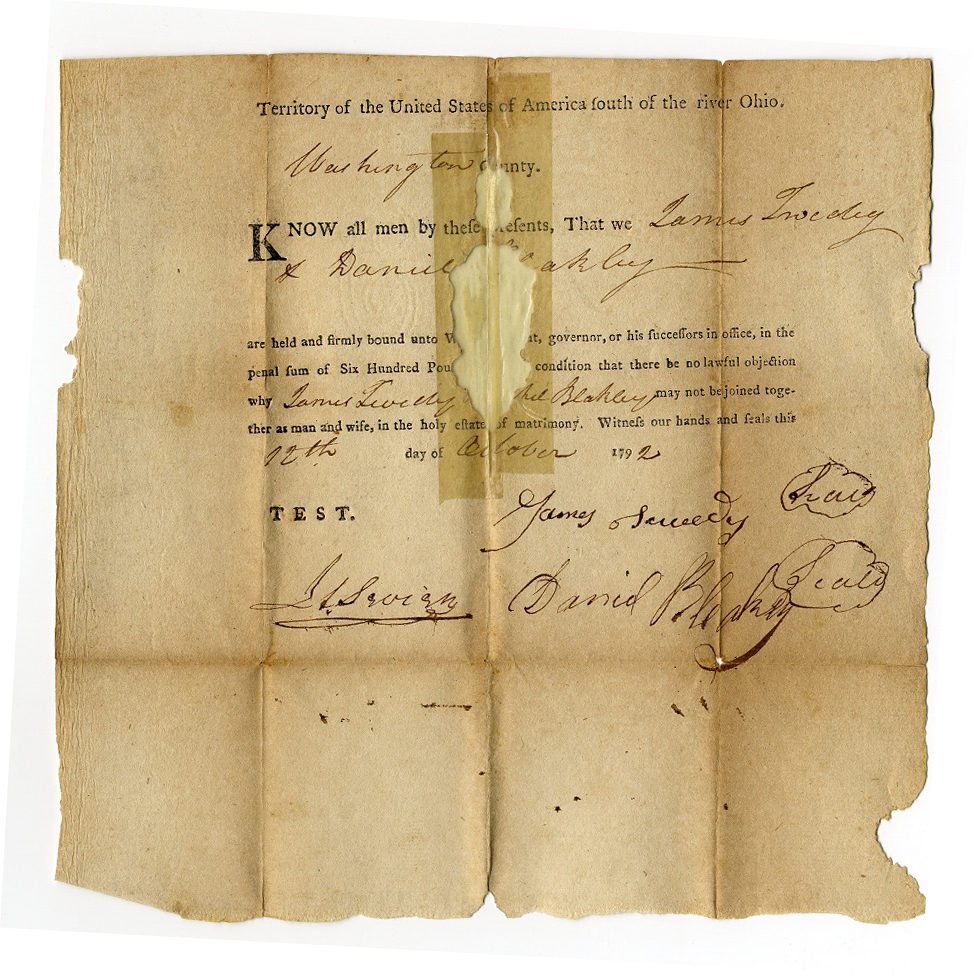 Territory of the United States of America ſouth of the river Ohio.
Washington County.
KNOW all men by theſe preſents, That we James Tweedy
& Daniel Blakley
are held and firmly bound unto W t, governor, or his ſucceſſors in office, in the
penal ſum of Six Hundred Pou condition that there be no lawful objection
why James Tweedy hel Blakley may not be joined toge-
ther as man and wife, in the holy eſtate of matrimony. Witneſs our hands and ſeals this
12th day of October 1792
TEST. James Tweedy Seal
Js. Sevier Daniel Blakley Seal